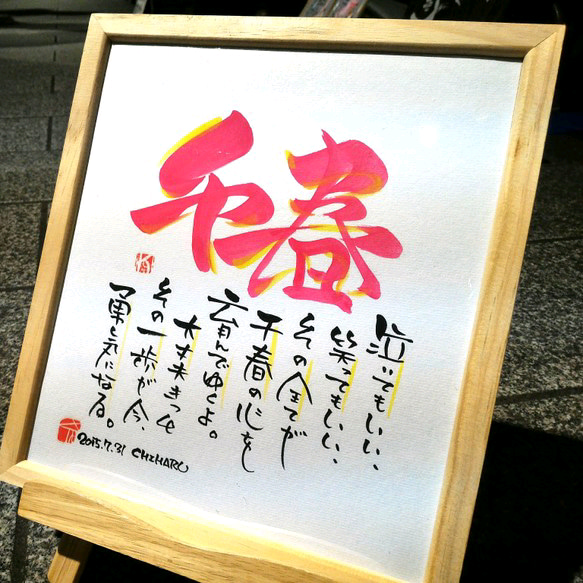 千春
泣いてもいい、
笑ってもいい、
その全てが
千春の心をし
育んでゆくよ。
大丈夫きっと
その一歩が今、
勇気になる。
2015.7.31 CHIHARU